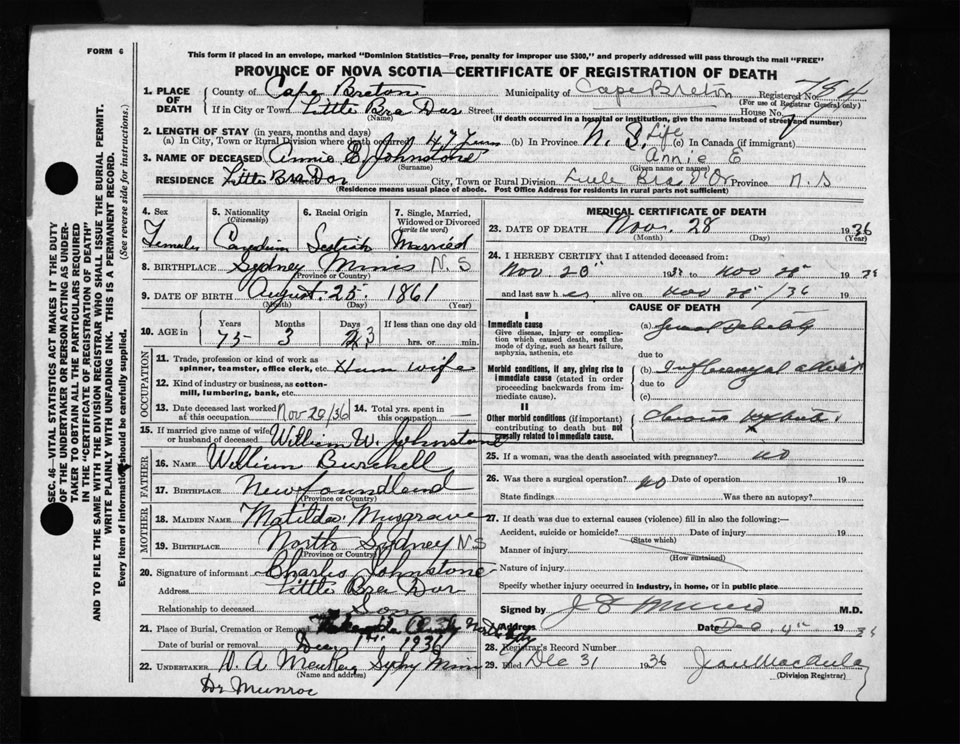 FORM 6
This form if placed in an envelope, marked "Dominion Statistics—Free, penalty for improper use $300," and properly addressed will pass through the mail "FREE"
PROVINCE OF NOVA SCOTIA—CERTIFICATE OF REGISTRATION OF DEATH
1. PLACE OF DEATH
County of Cape Breton Municipality of Cape Breton Registered No.
(For use of Registrar General only)
If in City or Town Little Bra Dor Street House No.
(Name) (If death occurred in a hospital or institution, give the name instead of street and number)
2. LENGTH OF STAY (in years, months and days)
(a) In City, Town or Rural Division where death occurred 47 (b) In Province N. S. Life (c) In Canada (if immigrant)
3. NAME OF DECEASED Annie E Johnstone Annie E
(Surname) (Given name or names)
RESIDENCE Little Bra Dor Street City, Town or Rural Division Little Bras d'Or Province N. S
(Residence means usual place of abode. Post Office Address for residents in rural parts not sufficient)
4. Sex Female
5. Nationality (Citizenship) Canadian
6. Racial Origin Scotish
7. Single, Married, Widowed or Divorced (write the word) Married
8. BIRTHPLACE Sydney Mines N. S
(Province or Country)
9. DATE OF BIRTH August 25 1861
(Month) (Day) (Year)
10. AGE in Years 75 Months 3 Days 3 If less than one day old hrs. or min.
OCCUPATION
11. Trade, profession or kind of work as spinner, teamster, office clerk, etc. House wife
12. Kind of industry or business, as cotton-mill, lumbering, bank, etc.
13. Date deceased last worked at this occupation Nov 20/36 14. Total yrs. spent in this occupation —
15. If married give name of wife or husband of deceased William W. Johnstone
FATHER
16. NAME William Burchell
17. BIRTHPLACE Newfoundland
(Province or Country)
MOTHER
18. MAIDEN NAME Matilda Musgrave
19. BIRTHPLACE North Sydney N S
(Province or Country)
20. Signature of informant Charles Johnstone
Address Little Bra Dor
Relationship to deceased Son
21. Place of Burial, Cremation or Removal
Date of burial or removal Dec 1st 1936
22. UNDERTAKER Sydney Mines
(Name and address)
Dr Munroe
MEDICAL CERTIFICATE OF DEATH
23. DATE OF DEATH Nov. 28 1936
(Month) (Day) (Year)
24. I HEREBY CERTIFY that I attended deceased from:
Nov. 19 to Nov 28 19
and last saw h er alive on Nov 28/36 19
CAUSE OF DEATH
I
Immediate cause
Give disease, injury or complication which caused death, not the mode of dying, such as heart failure, asphyxia, asthenia, etc
(a)
due to
Morbid conditions, if any, giving rise to immediate cause (stated in order proceeding backwards from immediate cause).
(b)
due to
(c)
II
Other morbid conditions (if important) contributing to death but not causally related to immediate cause.
25. If a woman, was the death associated with pregnancy? no
26. Was there a surgical operation? no Date of operation 19
State findings Was there an autopsy?
27. If death was due to external causes (violence) fill in also the following:—
Accident, suicide or homicide? Date of injury 19
(State which)
Manner of injury
(How sustained)
Nature of injury
Specify whether injury occurred in industry, in home, or in public place
Signed by M.D.
Address Date Dec 4th 19
28. Registrar's Record Number
29. Filed Dec 31 1936
(Division Registrar)
SEC. 46—VITAL STATISTICS ACT MAKES IT THE DUTY
OF THE UNDERTAKER OR PERSON ACTING AS UNDER-
TAKER TO OBTAIN ALL THE PARTICULARS REQUIRED
IN THE "CERTIFICATE OF REGISTRATION OF DEATH"
AND TO FILE THE SAME WITH THE DIVISION REGISTRAR WHO SHALL ISSUE THE BURIAL PERMIT.
WRITE PLAINLY WITH UNFADING INK. THIS IS A PERMANENT RECORD.
Every item of information should be carefully supplied. (See reverse side for instructions.)